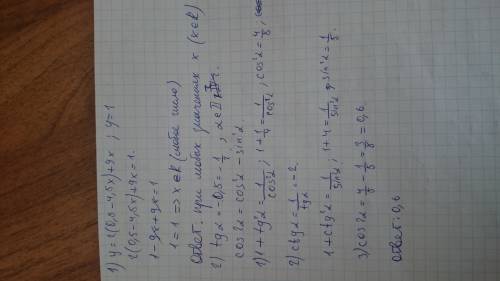 1) y = 2(0,5-4,5x)+9x ; y=1
2(0,5-4,5x)+9x=1.
1-9x+9x=1
1=1 => x∈R (любое число)
Ответ: при любых значениях x (x∈R)
2) tgα = -0,5 = -1/2 ; α∈II
cos2α = cos²α - sin²α.
1) 1+tg²α = 1/cos²α ; 1+1/4 = 1/cos²α ; cos²α = 4/5 ;
2) ctgα = 1/tgα = -2.
1+ctg²α = 1/sin²α ; 1+4 = 1/sin²α ; sin²α = 1/5.
3) cos2α = 4/5 - 1/5 = 3/5 = 0,6.
Ответ: 0,6